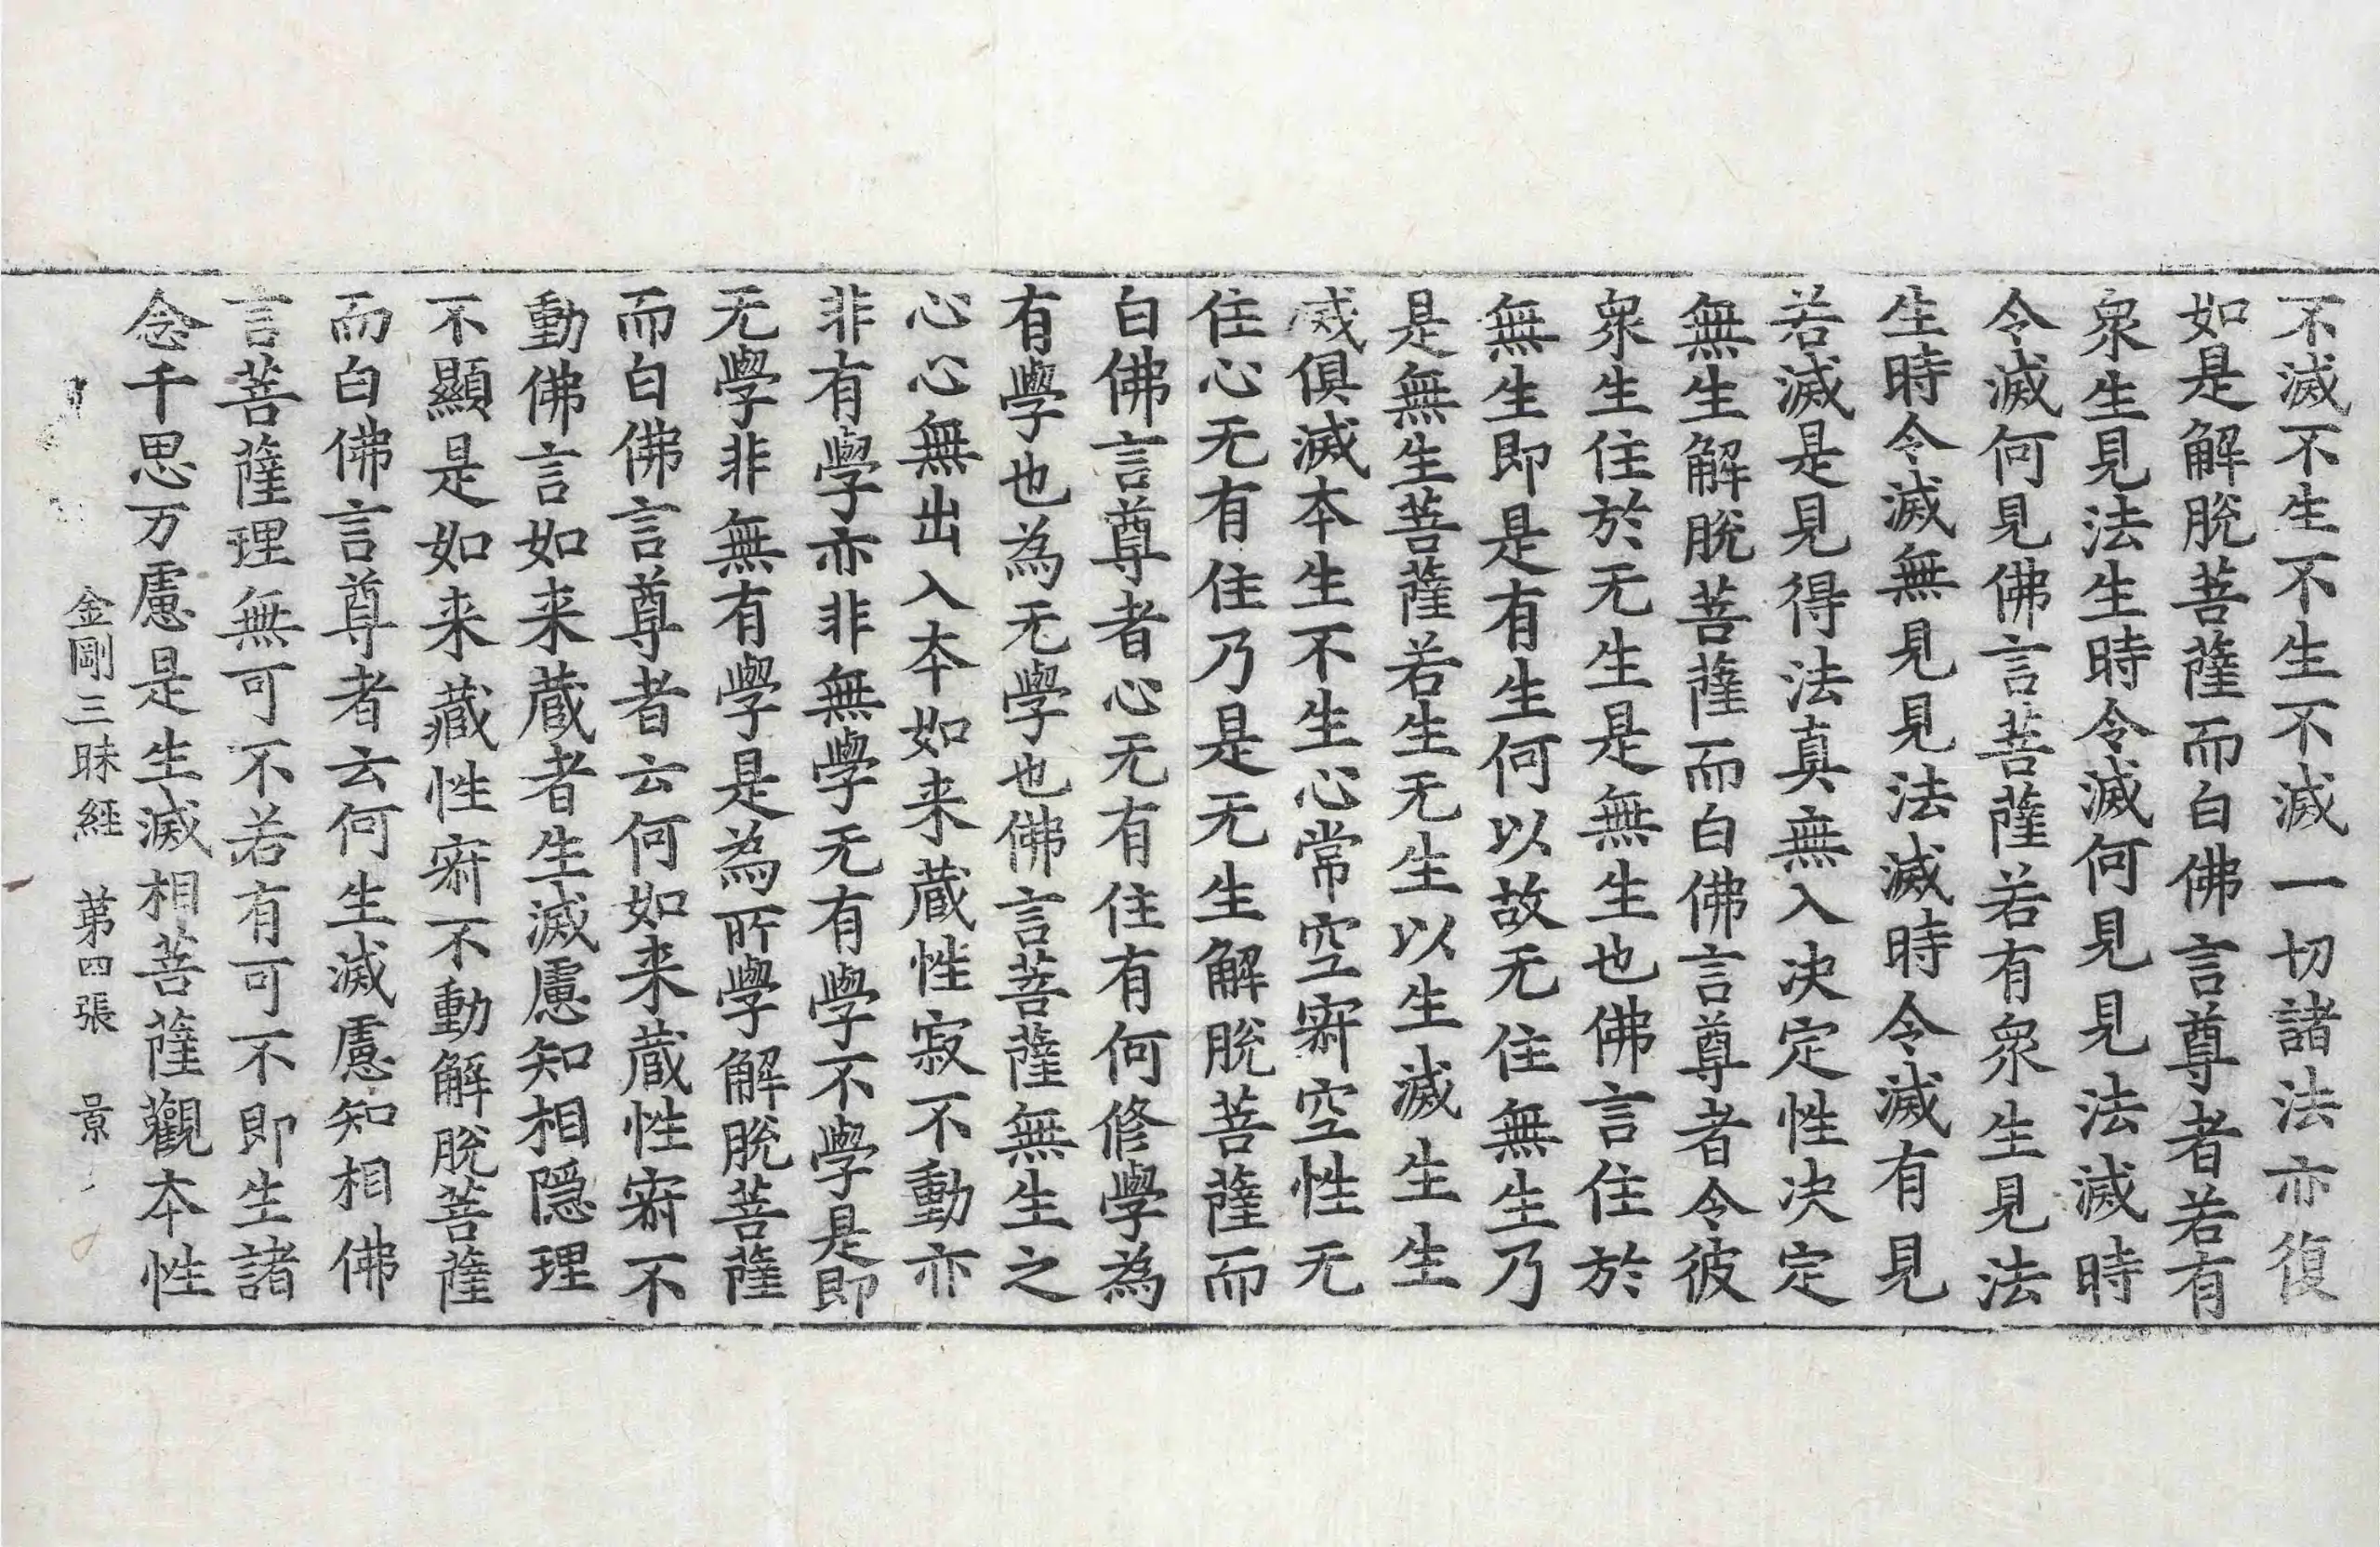 不滅不生不生不滅一切諸法亦復
如是解脫菩薩而白佛言尊者若有
衆生見法生時令滅何見見法滅時
令滅何見佛言菩薩若有衆生見法
生時令滅無見見法滅時令滅有見
若滅是見得法真無入决定性决定
無生解脫菩薩而白佛言尊者令彼
衆生住於无生是無生也佛言住於
無生即是有生何以故无住無生乃
是無生菩薩若生无生以生滅生生
滅俱滅本生不生心常空寂空性无
住心无有住乃是无生解脫菩薩而
白佛言尊者心无有住有何修學為
有學也為无學也佛言菩薩無生之
心心無出入本如来蔵性寂不動亦
非有學亦非無學无有學不學是即
无學非無有學是為所學解脫菩薩
而白佛言尊者云何如来蔵性寂不
動佛言如来蔵者生滅慮知相隱理
不顯是如来蔵性寂不動解脫菩薩
而白佛言尊者云何生滅慮知相佛
言菩薩理無可不若有可不即生諸
念千思万慮是生滅相菩薩觀本性
金剛三昧經 第四張 景